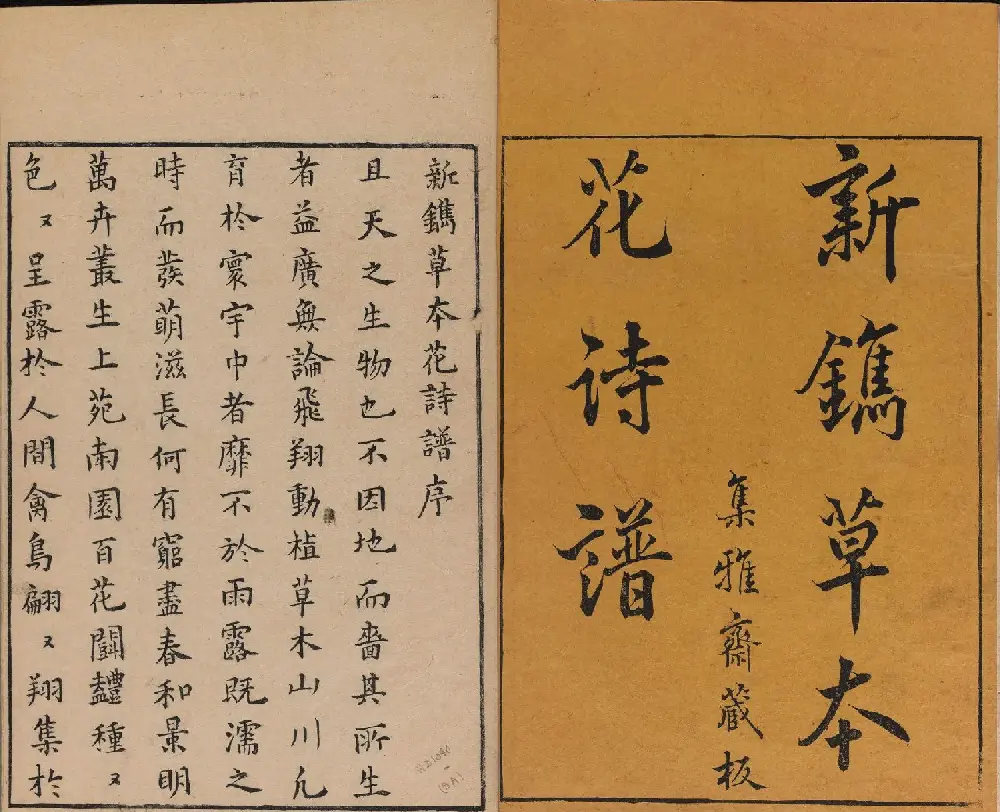 新鐫草本
集雅齋藏板
花诗谱
新鐫草本花詩譜序
且天之生物也不因地而嗇其所生
者益廣無論飛翔動植草木山川凡
育於寰宇中者靡不於雨露旣濡之
時而發萌滋長何有窮盡春和景明
萬卉叢生上苑南園百花鬪豔種〻
色〻呈露於人間禽鳥翩〻翔集於